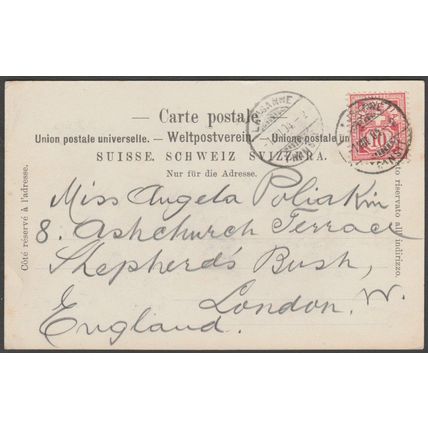 — Carte postale. —
Union postale universelle. — Weltpostverein. — Unione postale universale.
SUISSE. SCHWEIZ. SVIZZERA.
Nur für die Adresse.
Côté réservé à l'adresse.
Lato riservato all'indirizzo.
LAUSANNE
10
Miss Angela Poliakin
8. Ashchurch Terrace
Shepherd's Bush,
London. W.
England.